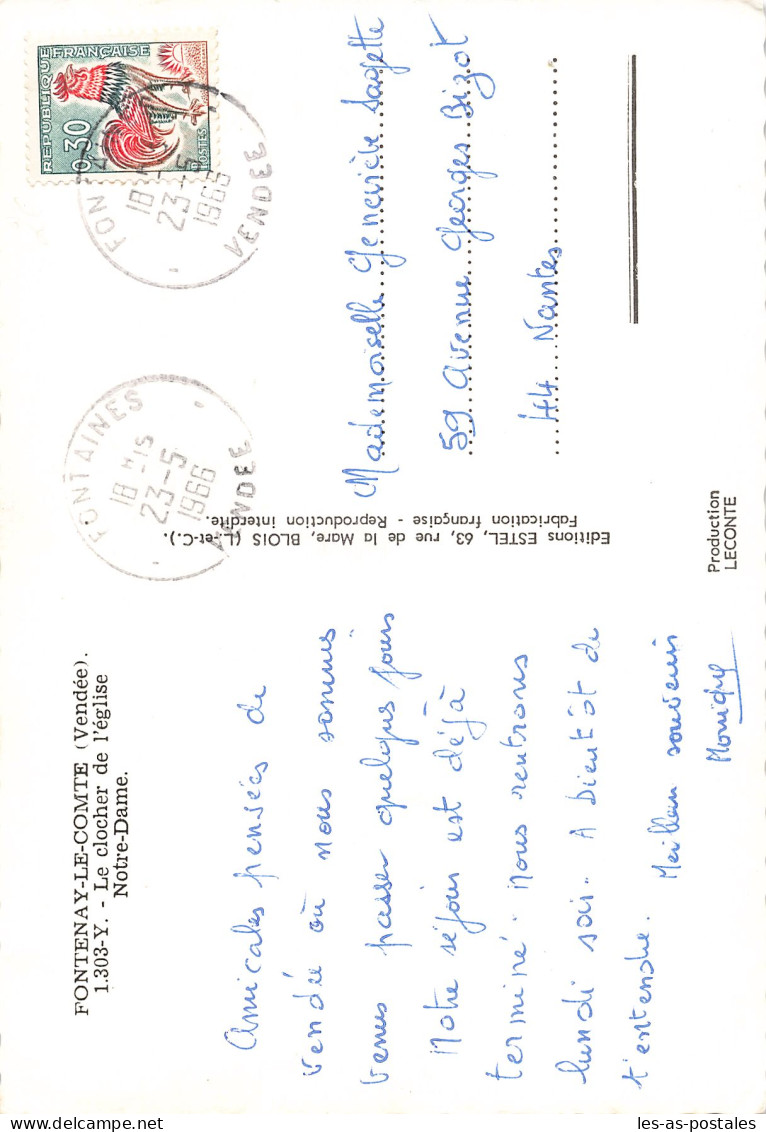 FONTENAY-LE-COMTE (Vendée).
1.303-Y. - Le clocher de l'église
Notre-Dame.
Amicales pensées de
Vendée où nous sommes
venus passer quelques jours
Notre séjour est déjà
terminé. Nous rentrons
lundi soir. A bientôt de
t'entendre. Meilleur souvenir
Monique
Editions ESTEL, 63, rue de la Mare, BLOIS (L.-et-C.).
Fabrication française - Reproduction interdite.
Production
LECONTE
FONTAINES
18 H 15
23-5
1966
VENDEE
REPUBLIQUE FRANÇAISE
0,30
POSTES
18 H
23-5
1966
VENDEE
Mademoiselle Geneviève Sagette
59 Avenue Georges Bizot
44 Nantes
les-as-postales